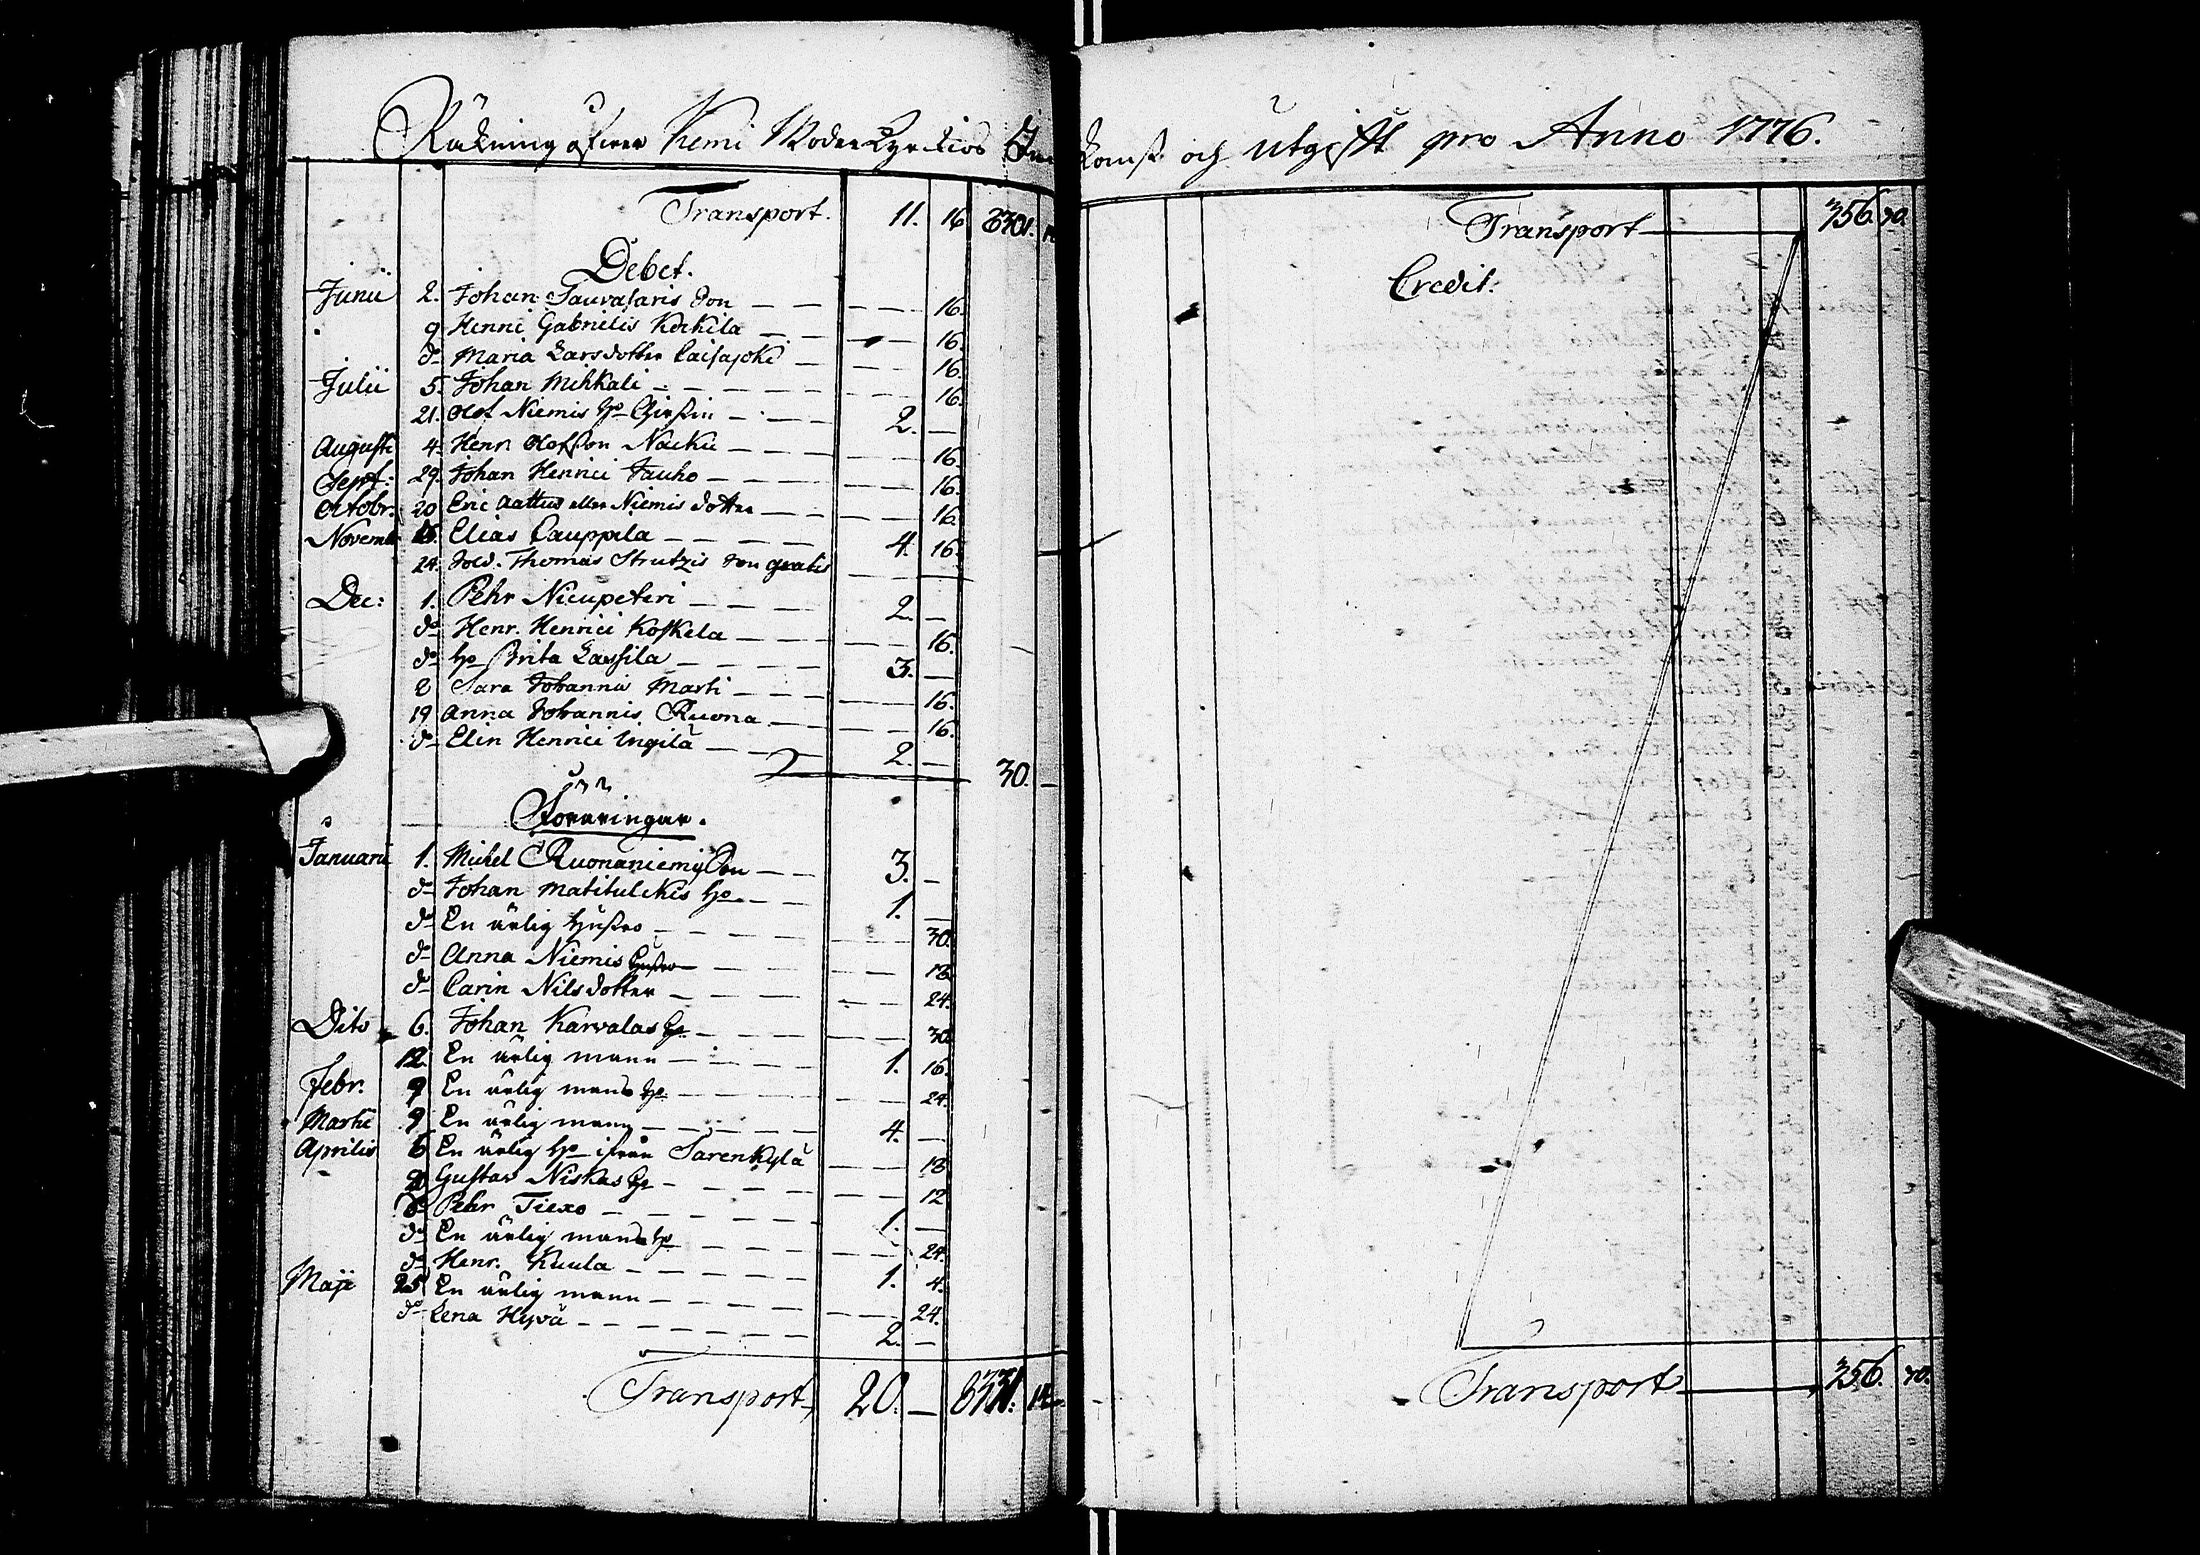 Räkning öfwer Kemi Moderkyrkios Inkomst och utgifft pro Anno 1776.
Transport. 11. 16 8301.
Debet.
Junii 2. Johan Tauvasaris Son — 16.
9 Henric Gabrielis Kerkila — 16.
do Maria Larsdotter — 16.
Julii 5. Johan Mihkali — 16.
21. Olof Niemis ho — 2. —
Augusti 4. Henr. Olofsson Nacku — 16.
Sept: 29. Johan Henrici Tauho — 16.
Octobr. 20 Eric Aattus eller Niemis dotter — 16.
Novemb. Elias Cauppila — 4. 16.
24. Sold. Thomas Strutzis Son gratis —
Dec: 1. Pehr Nicupeteri — 2. —
do Henr. Henrici Koskela — 16.
do ho Brita Lassila — 3. —
2 Sara Johannis Marti — 16.
19 Anna Johannis Ruona — 16.
do Elin Henrici Ingilä — 2. —
30. —
Föräringar.
Januarii 1. Michel Ruonaniemis Son — 3. —
do Johan Matitulckis ho — 1. —
do En ärlig hustro — 30.
do Anna Niemis — 18
do Carin Nilsdotter — 24.
Dito 6. Johan Karvalas ho — 30
12. En ärlig mann — 1. 16.
Febr. 9 En ärlig mans ho — 24.
Martii 9 En ärlig mann — 4. —
Aprilis 6 En ärlig ho ifrån Sarenkylä — 18
Gustav Niskas ho — 12
do Pehr Tiexo — 1. —
do En ärlig mans ho — 24.
do Henr. Kuula — 1. 4.
Maji 25 En ärlig mann — 24.
do Lena Hyvä — 2. —
Transport 20. — 8331. 14
Transport 356. 30.
Credit:
Transport 356. 30.